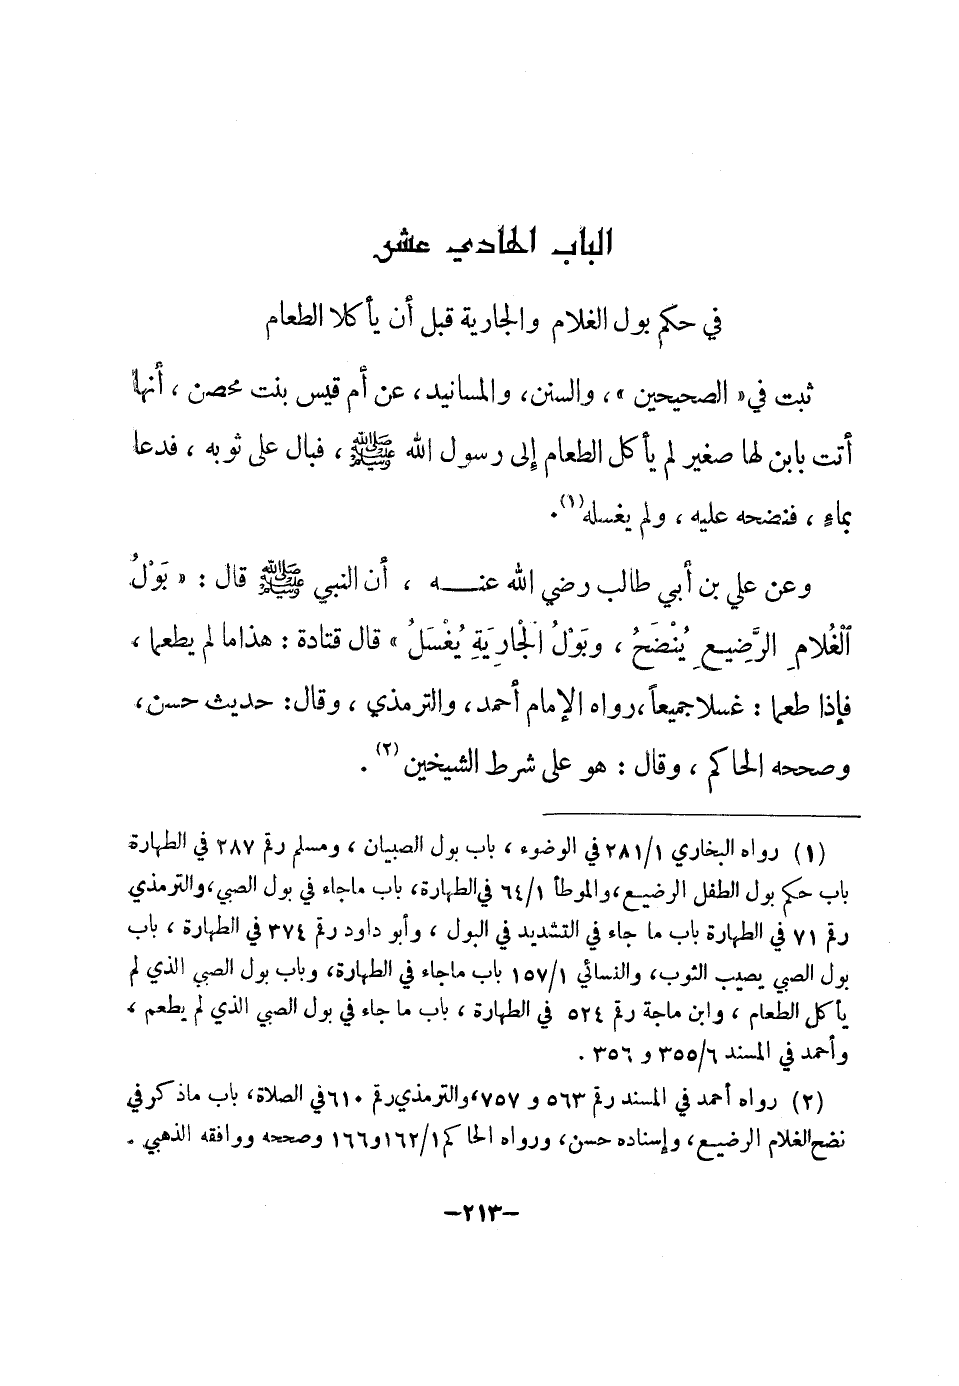 الباب الحادي عشر
في حكم بول الغلام والجارية قبل أن يأكلا الطعام
ثبت في « الصحيحين » ، والسنن، والمسانيد، عن أم قيس بنت محصن ، أنها
أتت بابن لها صغير لم يأكل الطعام إلى رسول الله ﷺ ، فبال على ثوبه ، فدعا
بماءٍ ، فنضحه عليه ، ولم يغسله(١).
وعن علي بن أبي طالب رضي الله عنـــه ، أن النبي ﷺ قال : « بَوْلُ
ٱلْغُلامِ الرَّضِيعِ يُنْضَحُ ، وبَوْلُ الْجارِيَةِ يُغْسَلُ » قال قتادة : هذاما لم يطعما ،
فإذا طعما : غسلاجميعاً،رواه الإمام أحمد، والترمذي ، وقال: حديث حسن،
وصححه الحاكم ، وقال : هو على شرط الشيخين (٢) .
(١) رواه البخاري ٢٨١/١ في الوضوء ، باب بول الصبيان ، ومسلم رقم ٢٨٧ في الطهارة
باب حكم بول الطفل الرضيع،والموطأ ٦٤/١ في الطهارة، باب ماجاء في بول الصبي،والترمذي
رقم ٧١ في الطهارة باب ما جاء في التشديد في البول ، وأبو داود رقم ٣٧٤ في الطهارة ، باب
بول الصبي يصيب الثوب، والنسائي ١٥٧/١ باب ماجاء في الطهارة، وباب بول الصبي الذي لم
يأكل الطعام ، وابن ماجة رقم ٥٢٤ في الطهارة ، باب ما جاء في بول الصبي الذي لم يطعم ،
وأحمد في المسند ٣٥٥/٦ و ٣٥٦ .
(٢) رواه أحمد في المسند رقم ٥٦٣ و ٧٥٧،والترمذي رقم ٦١٠في الصلاة، باب ماذكر في
نضح الغلام الرضيع، وإسناده حسن، ورواه الحاكم ١٦٢/١و١٦٦ وصححه ووافقه الذهبي .
-٢١٣-